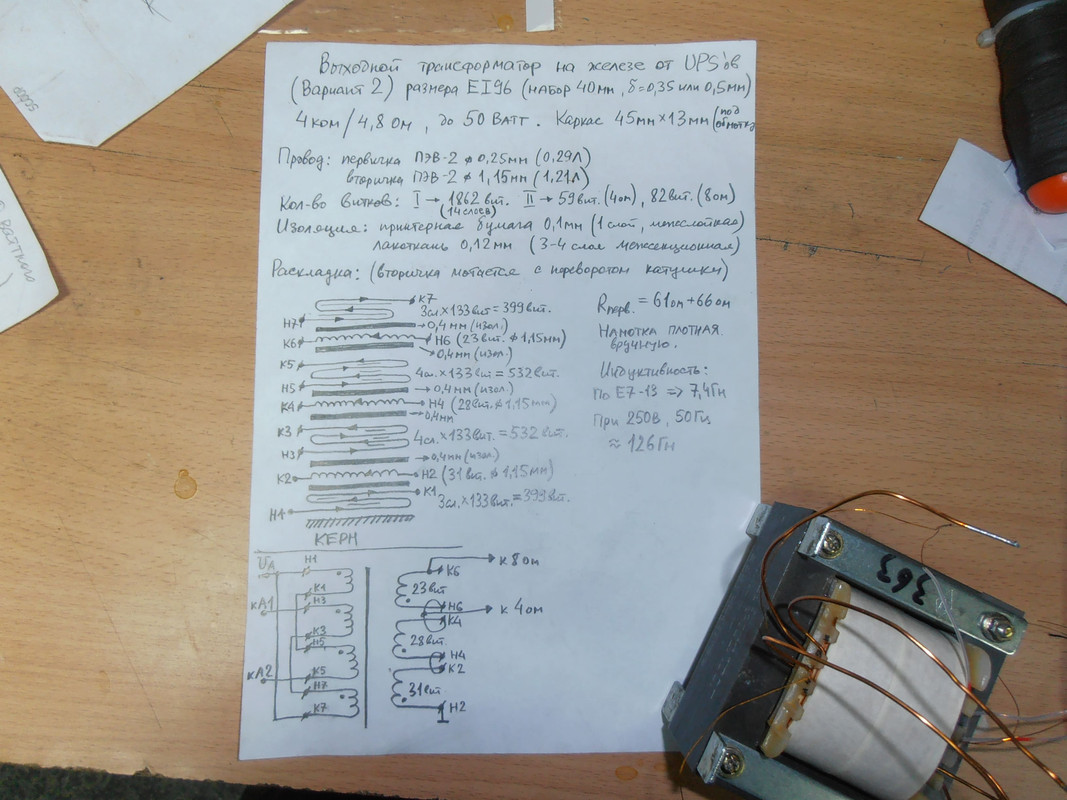 Выходной трансформатор на железе от UPS'ов
(Вариант 2) размера EI96 (набор 40мм, δ=0,35 или 0,5мм)
4 ком / 4,8 ом, до 50 Ватт. Каркас 45мм×13мм (под обмотку)
Провод: первичка ПЭВ-2 ⌀ 0,25мм (0,29Л)
вторичка ПЭВ-2 ⌀ 1,15мм (1,21Л)
Кол-во витков: I → 1862 вит. II → 59 вит. (4ом), 82 вит. (8ом)
(14 слоев)
Изоляция: принтерная бумага 0,1мм (1 слой, межслойная)
лакоткань 0,12мм (3-4 слоя межсекционная)
Раскладка: (вторичка мотается с переворотом катушки)
К7
3сл.×133вит = 399вит.
Н7
0,4мм (изол.)
К6
Н6 (23вит. ⌀ 1,15мм)
0,4мм (изол.)
К5
4сл.×133вит = 532вит.
Н5
0,4мм (изол.)
К4
Н4 (28вит. ⌀ 1,15мм)
0,4мм
К3
4сл.×133вит. = 532вит.
Н3
0,4мм (изол.)
К2
Н2 (31вит. ⌀ 1,15мм)
К1
3сл.×133вит. = 399вит.
Н1
КЕРН
Rперв. = 61ом+66ом
Намотка плотная.
вручную.
Индуктивность:
По Е7-13 => 7,4Гн
При 250В, 50Гц
≈ 126Гн
UA
Н1
К1
кА1
Н3
К3
Н5
кА2
К5
Н7
К7
К6
к 8ом
23вит
Н6
к 4ом
К4
28вит.
Н4
К2
31вит
Н2
363